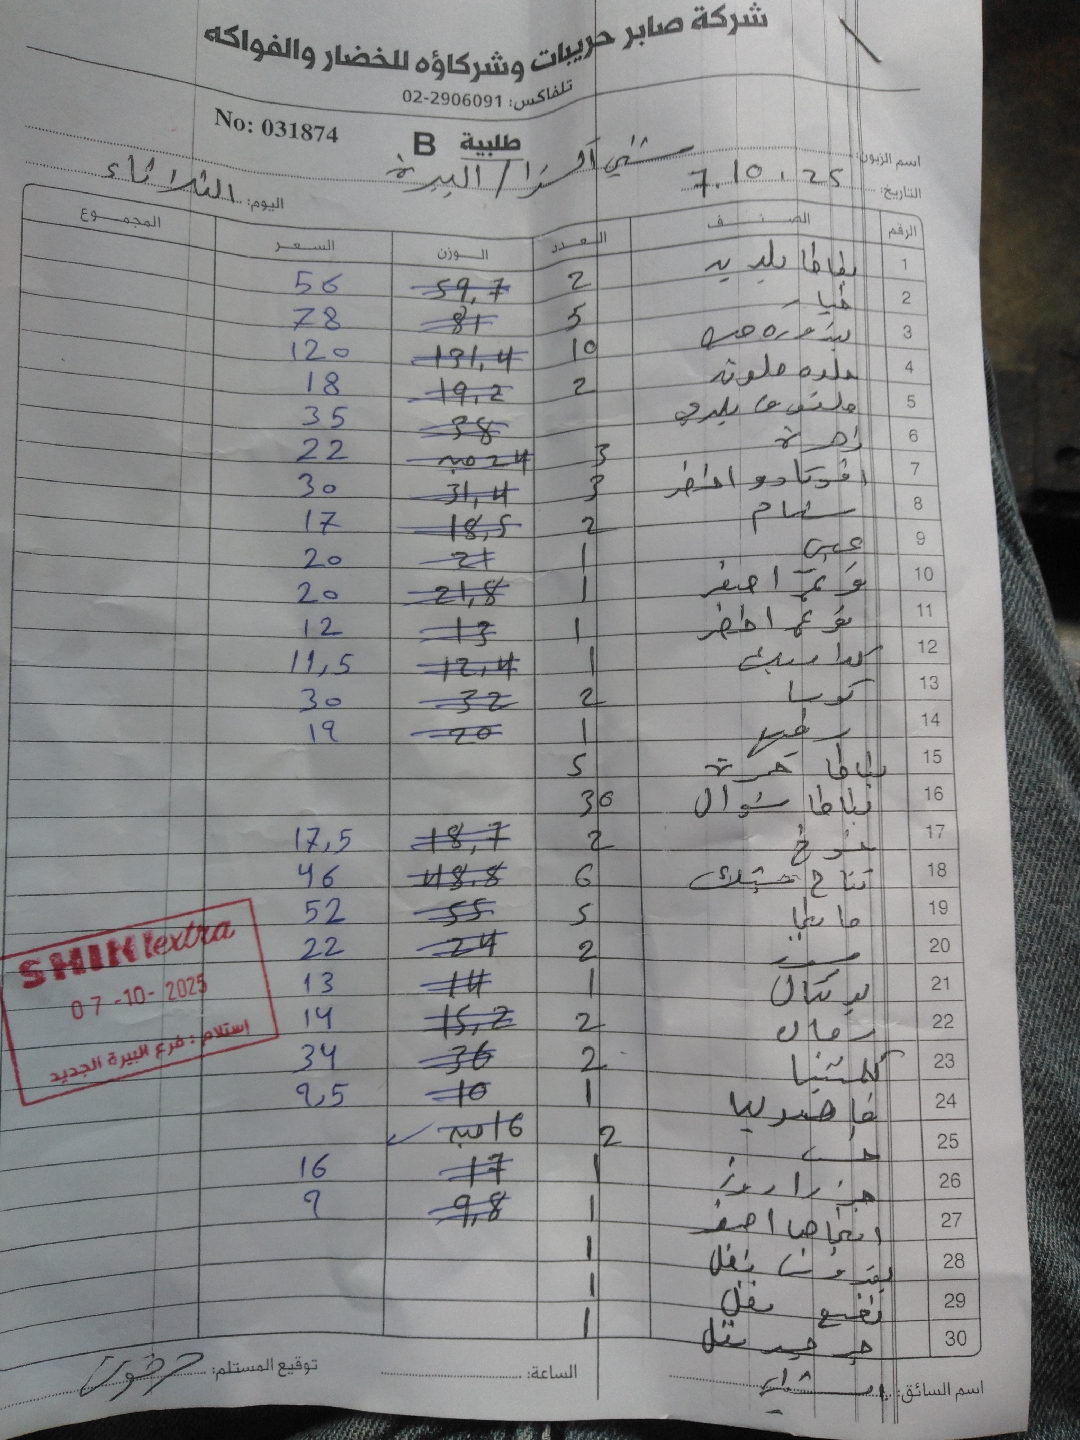 شركة صابر حريبات وشركاؤه للخضار والفواكه
تلفاكس: 02-2906091
No: 031874
طلبية B
اسم الزبون: / البيرة
التاريخ: 7.10.25
اليوم: الثلاثاء
الرقم الصنف العدد الوزن السعر المجموع
1 بطاطا بلديه 2 59,7 56
2 خيار 5 81 78
3 بندوره 10 131,4 120
4 حلوه ملونه 2 19,2 18
5 ملفوف بلدي 38 35
6 ذرة 3 24 حبه 22
7 افوكادو اخضر 3 31,4 30
8 شمام 2 18,5 17
9 1 21 20
10 اصفر 1 21,8 20
11 اخضر 1 13 12
12 1 12,4 11,5
13 كوسا 2 32 30
14 1 20 19
15 بطاطا 5
16 بطاطا شوال 30
17 خوخ 2 18,7 17,5
18 تفاح 6 48,8 46
19 5 55 52
20 موز 2 24 22
21 برتقال 1 14 13
22 رمان 2 15,2 14
23 كلمنتينا 2 36 34
24 1 10 9,5
25 خس 2 16 حبه
26 1 17 16
27 اصفر 1 9,8 9
28 بقدونس نفل 1
29 نعنع نفل 1
30 جرجير نفل 1
SHINI extra
07-10-2025
استلام : فرع البيرة الجديد
اسم السائق:
الساعة:
توقيع المستلم: